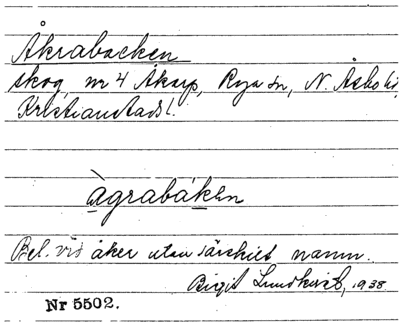 Åkrabacken
skog, nr 4 Åkarp, Rya sn, N. Åsbo hd,
Kristianstads l.
àgrabákən
Bel. vid åker utan särskilt namn.
Birgit Lundkvist, 1938
Nr 5502.